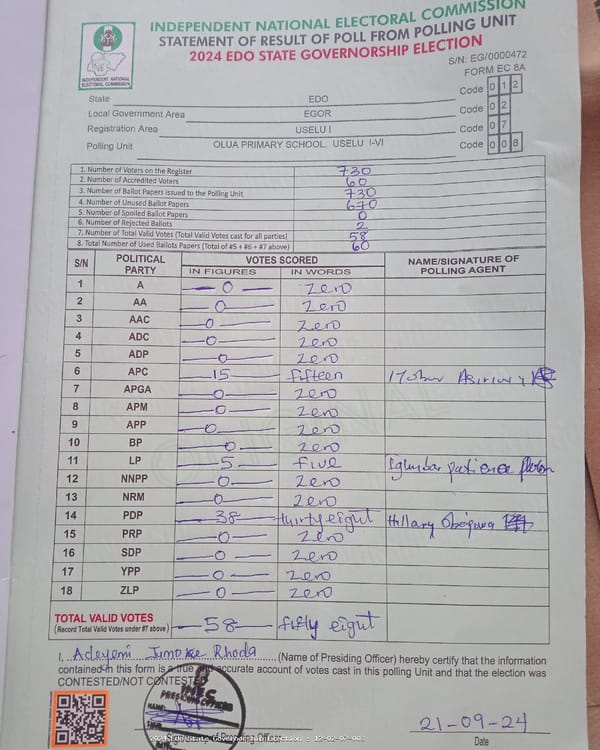 INDEPENDENT NATIONAL ELECTORAL COMMISSION
STATEMENT OF RESULT OF POLL FROM POLLING UNIT
2024 EDO STATE GOVERNORSHIP ELECTION
INDEPENDENT NATIONAL
ELECTORAL COMMISSION
S/N: EG/0000472
FORM EC 8A
State EDO Code 0 1 2
Local Government Area EGOR Code 0 2
Registration Area USELU I Code 0 7
Polling Unit OLUA PRIMARY SCHOOL, USELU I-VI Code 0 0 8
1. Number of Voters on the Register 730
2. Number of Accredited Voters 60
3. Number of Ballot Papers Issued to the Polling Unit 730
4. Number of Unused Ballot Papers 670
5. Number of Spoiled Ballot Papers 0
6. Number of Rejected Ballots 2
7. Number of Total Valid Votes (Total Valid Votes cast for all parties) 58
8. Total Number of Used Ballots Papers (Total of #5 + #6 + #7 above) 60
S/N POLITICAL PARTY VOTES SCORED NAME/SIGNATURE OF POLLING AGENT
IN FIGURES IN WORDS
1 A 0 Zero
2 AA 0 Zero
3 AAC 0 Zero
4 ADC 0 Zero
5 ADP 0 Zero
6 APC 15 fifteen
7 APGA 0 Zero
8 APM 0 Zero
9 APP 0 Zero
10 BP 0 Zero
11 LP 5 five patience
12 NNPP 0 Zero
13 NRM 0 Zero
14 PDP 38 thirty eight Hillary
15 PRP 0 Zero
16 SDP 0 Zero
17 YPP 0 Zero
18 ZLP 0 Zero
TOTAL VALID VOTES 58 fifty eight
(Record Total Valid Votes under #7 above)
I, Adeyemi Jimoke Rhoda (Name of Presiding Officer) hereby certify that the information
contained in this form is a true and accurate account of votes cast in this polling Unit and that the election was
CONTESTED/NOT CONTESTED
INEC
PRESIDING OFFICER
21-09-24
Date